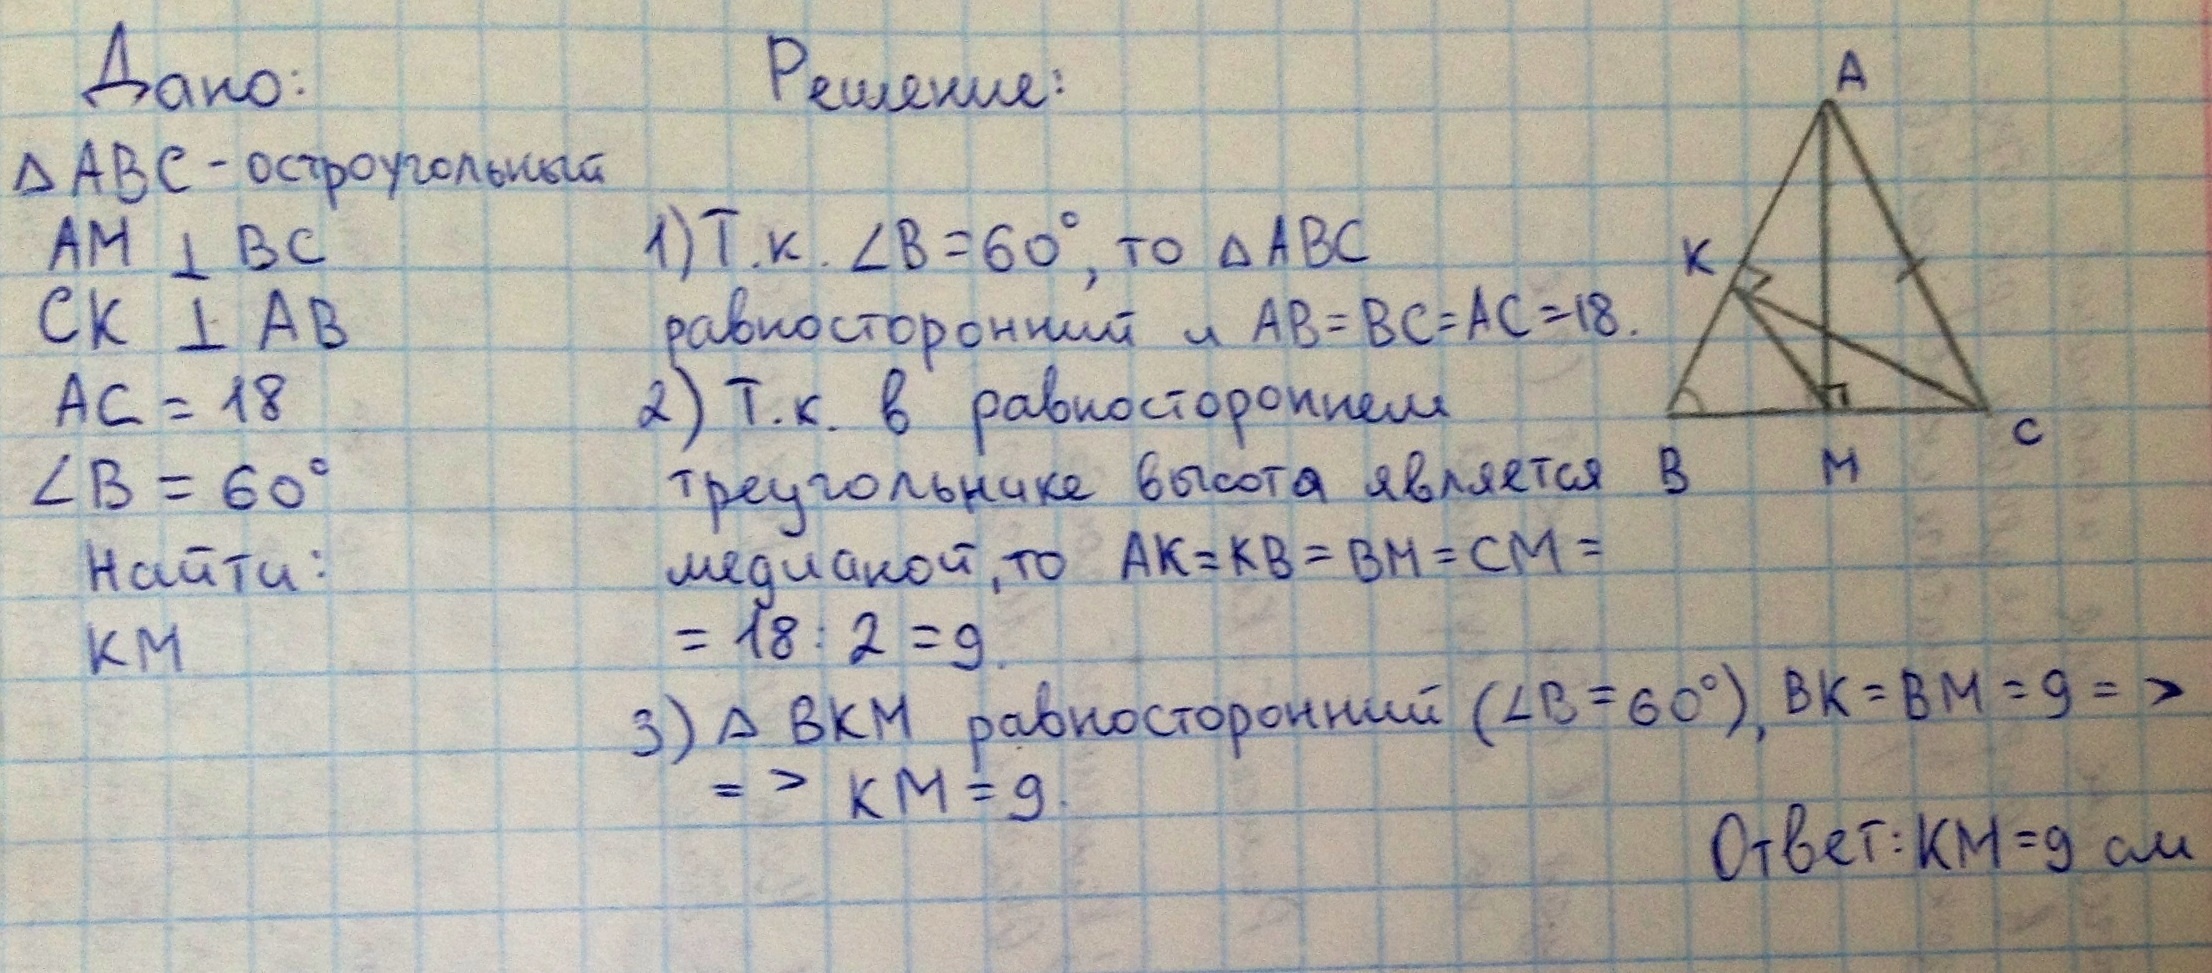 Дано:
△ABC - остроугольный
AM ⊥ BC
CK ⊥ AB
AC = 18
∠B = 60°
Найти:
KM
Решение:
1) Т.к. ∠B = 60°, то △ABC
равносторонний и AB = BC = AC = 18.
2) Т.к. в равностороннем
треугольнике высота является
медианой, то AK = KB = BM = CM =
= 18 : 2 = 9.
3) △ BKM равносторонний (∠B = 60°), BK = BM = 9 = >
= > KM = 9.
Ответ: KM = 9 см
A
K
B
M
C